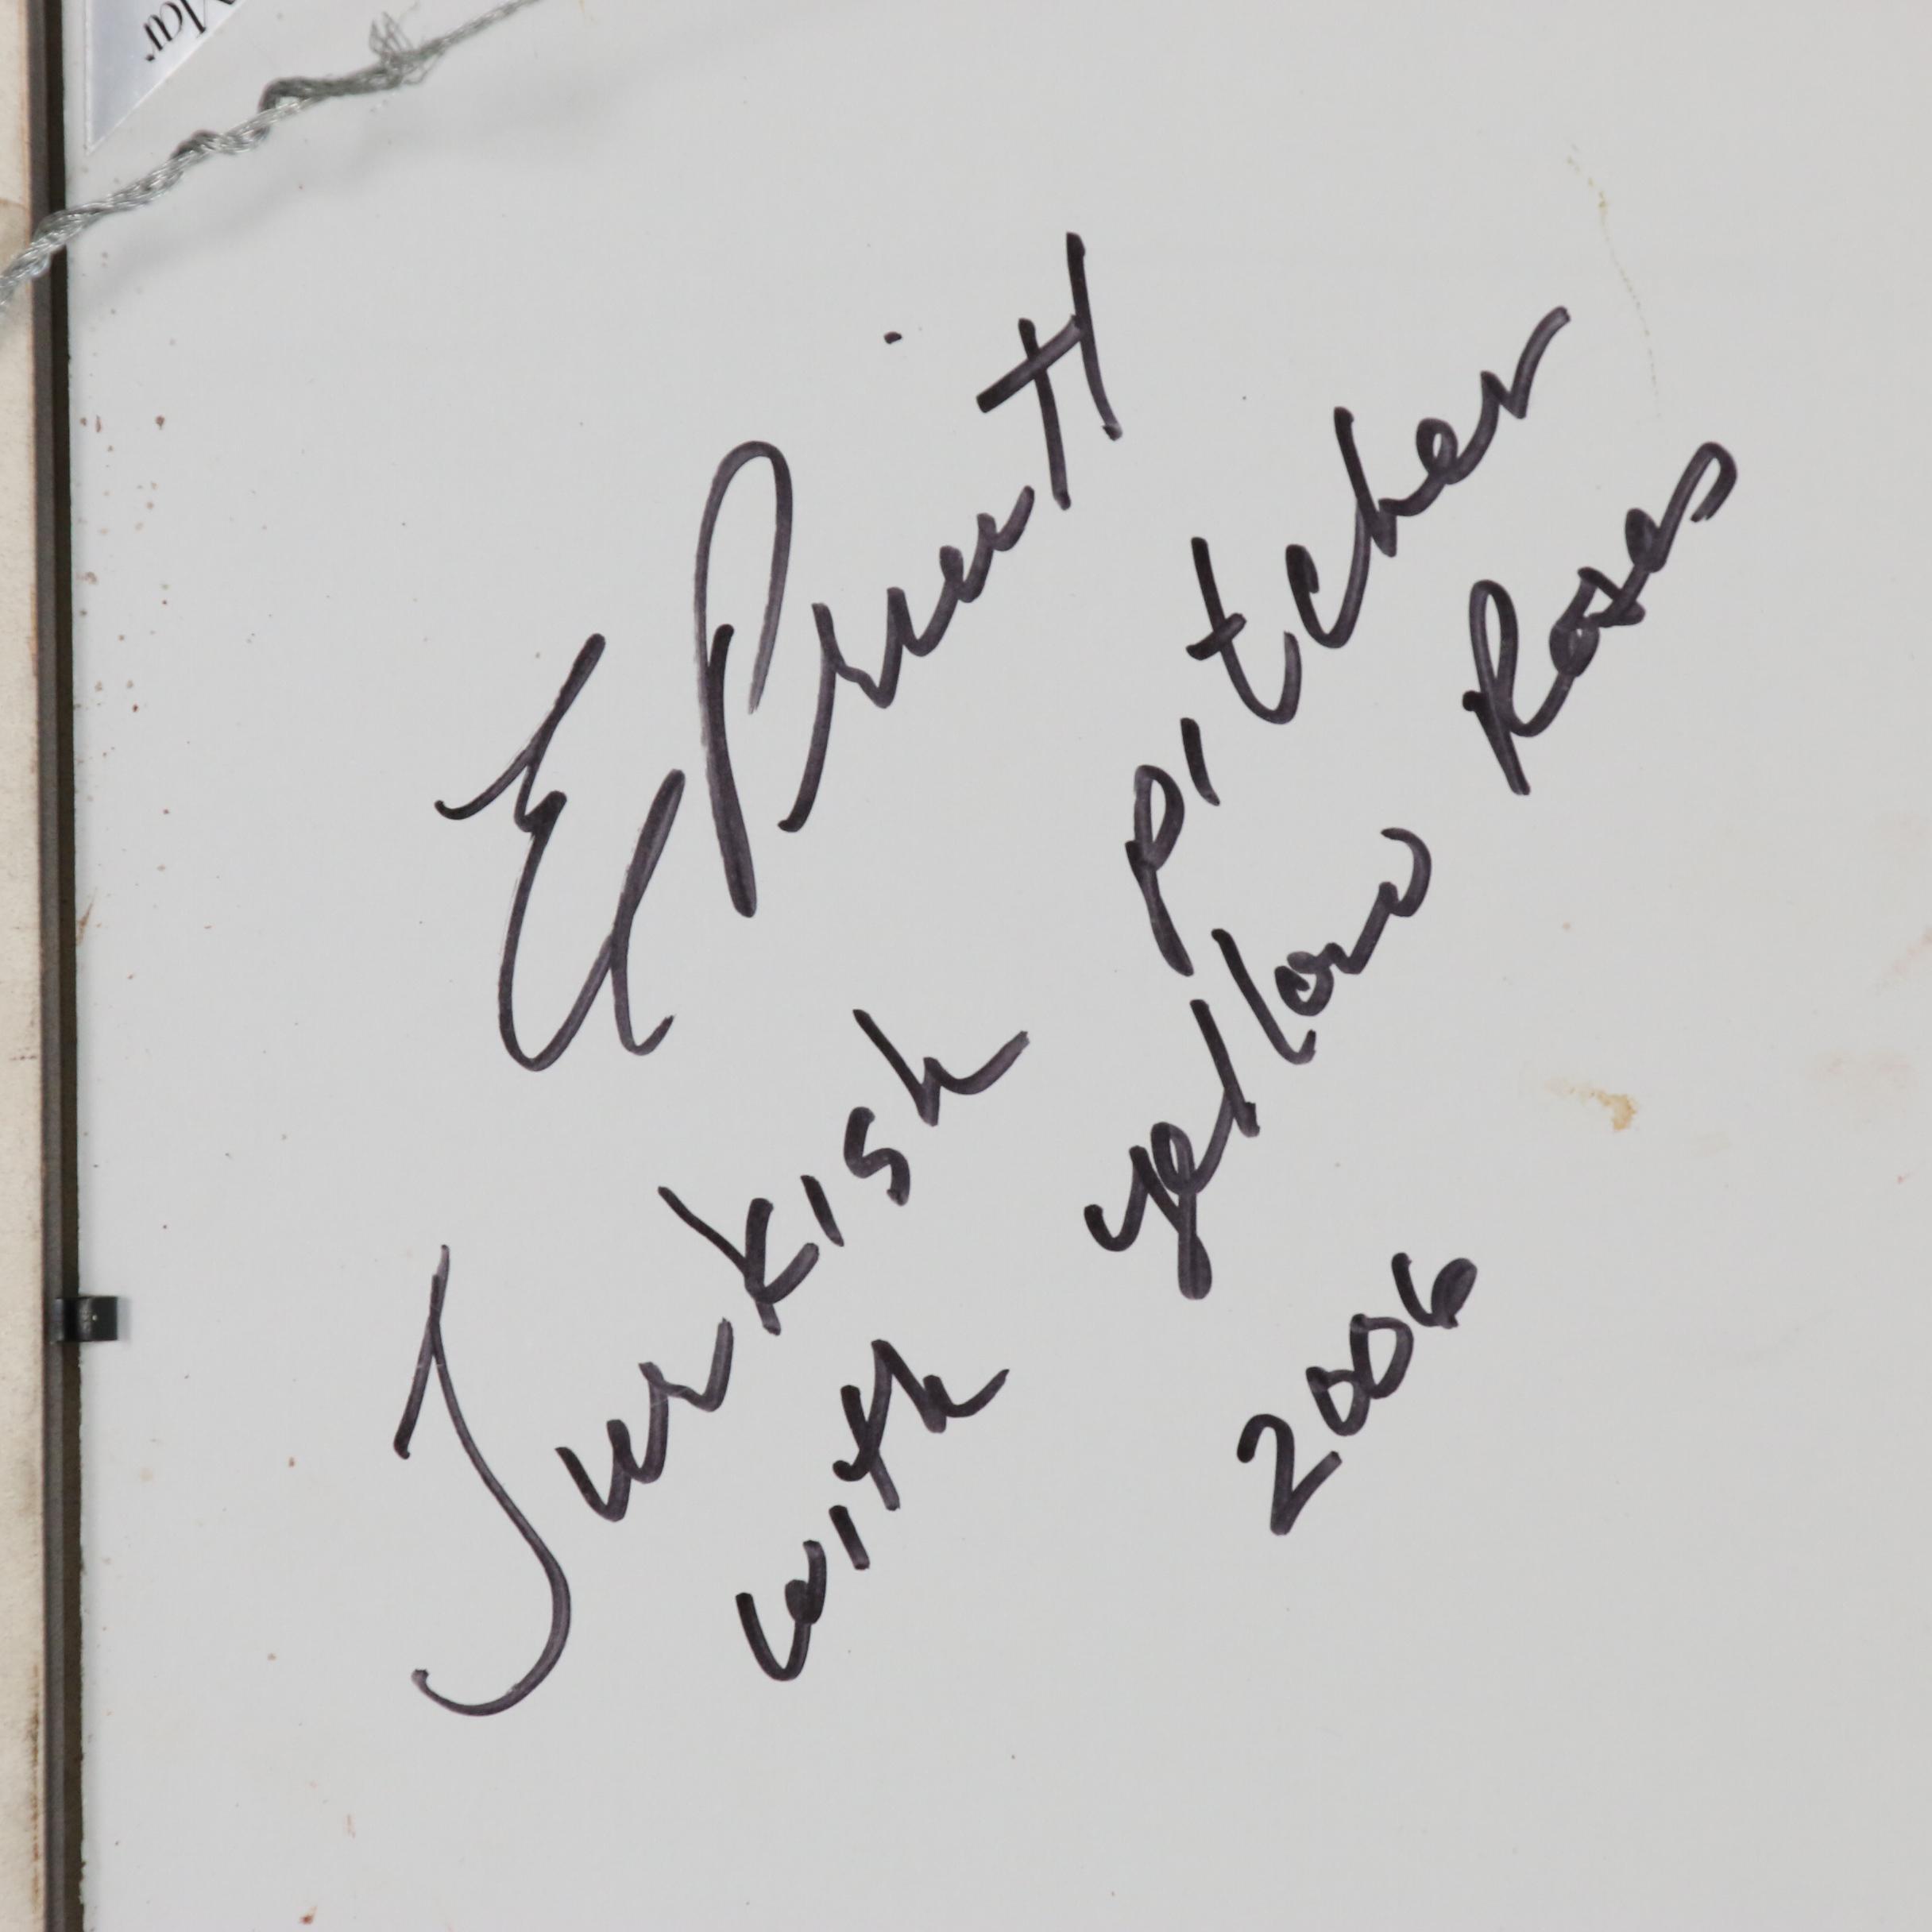 E Pruitt
Turkish pitcher
with yellow Roses
2006